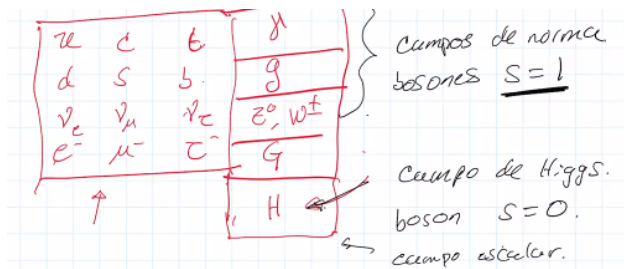 u c t γ
d s b. g
ν_e ν_μ ν_τ Z⁰, W±
e⁻ μ⁻ τ⁻ G
H
campos de norma
bosones S=1
campo de Higgs.
boson S=0.
campo escalar.